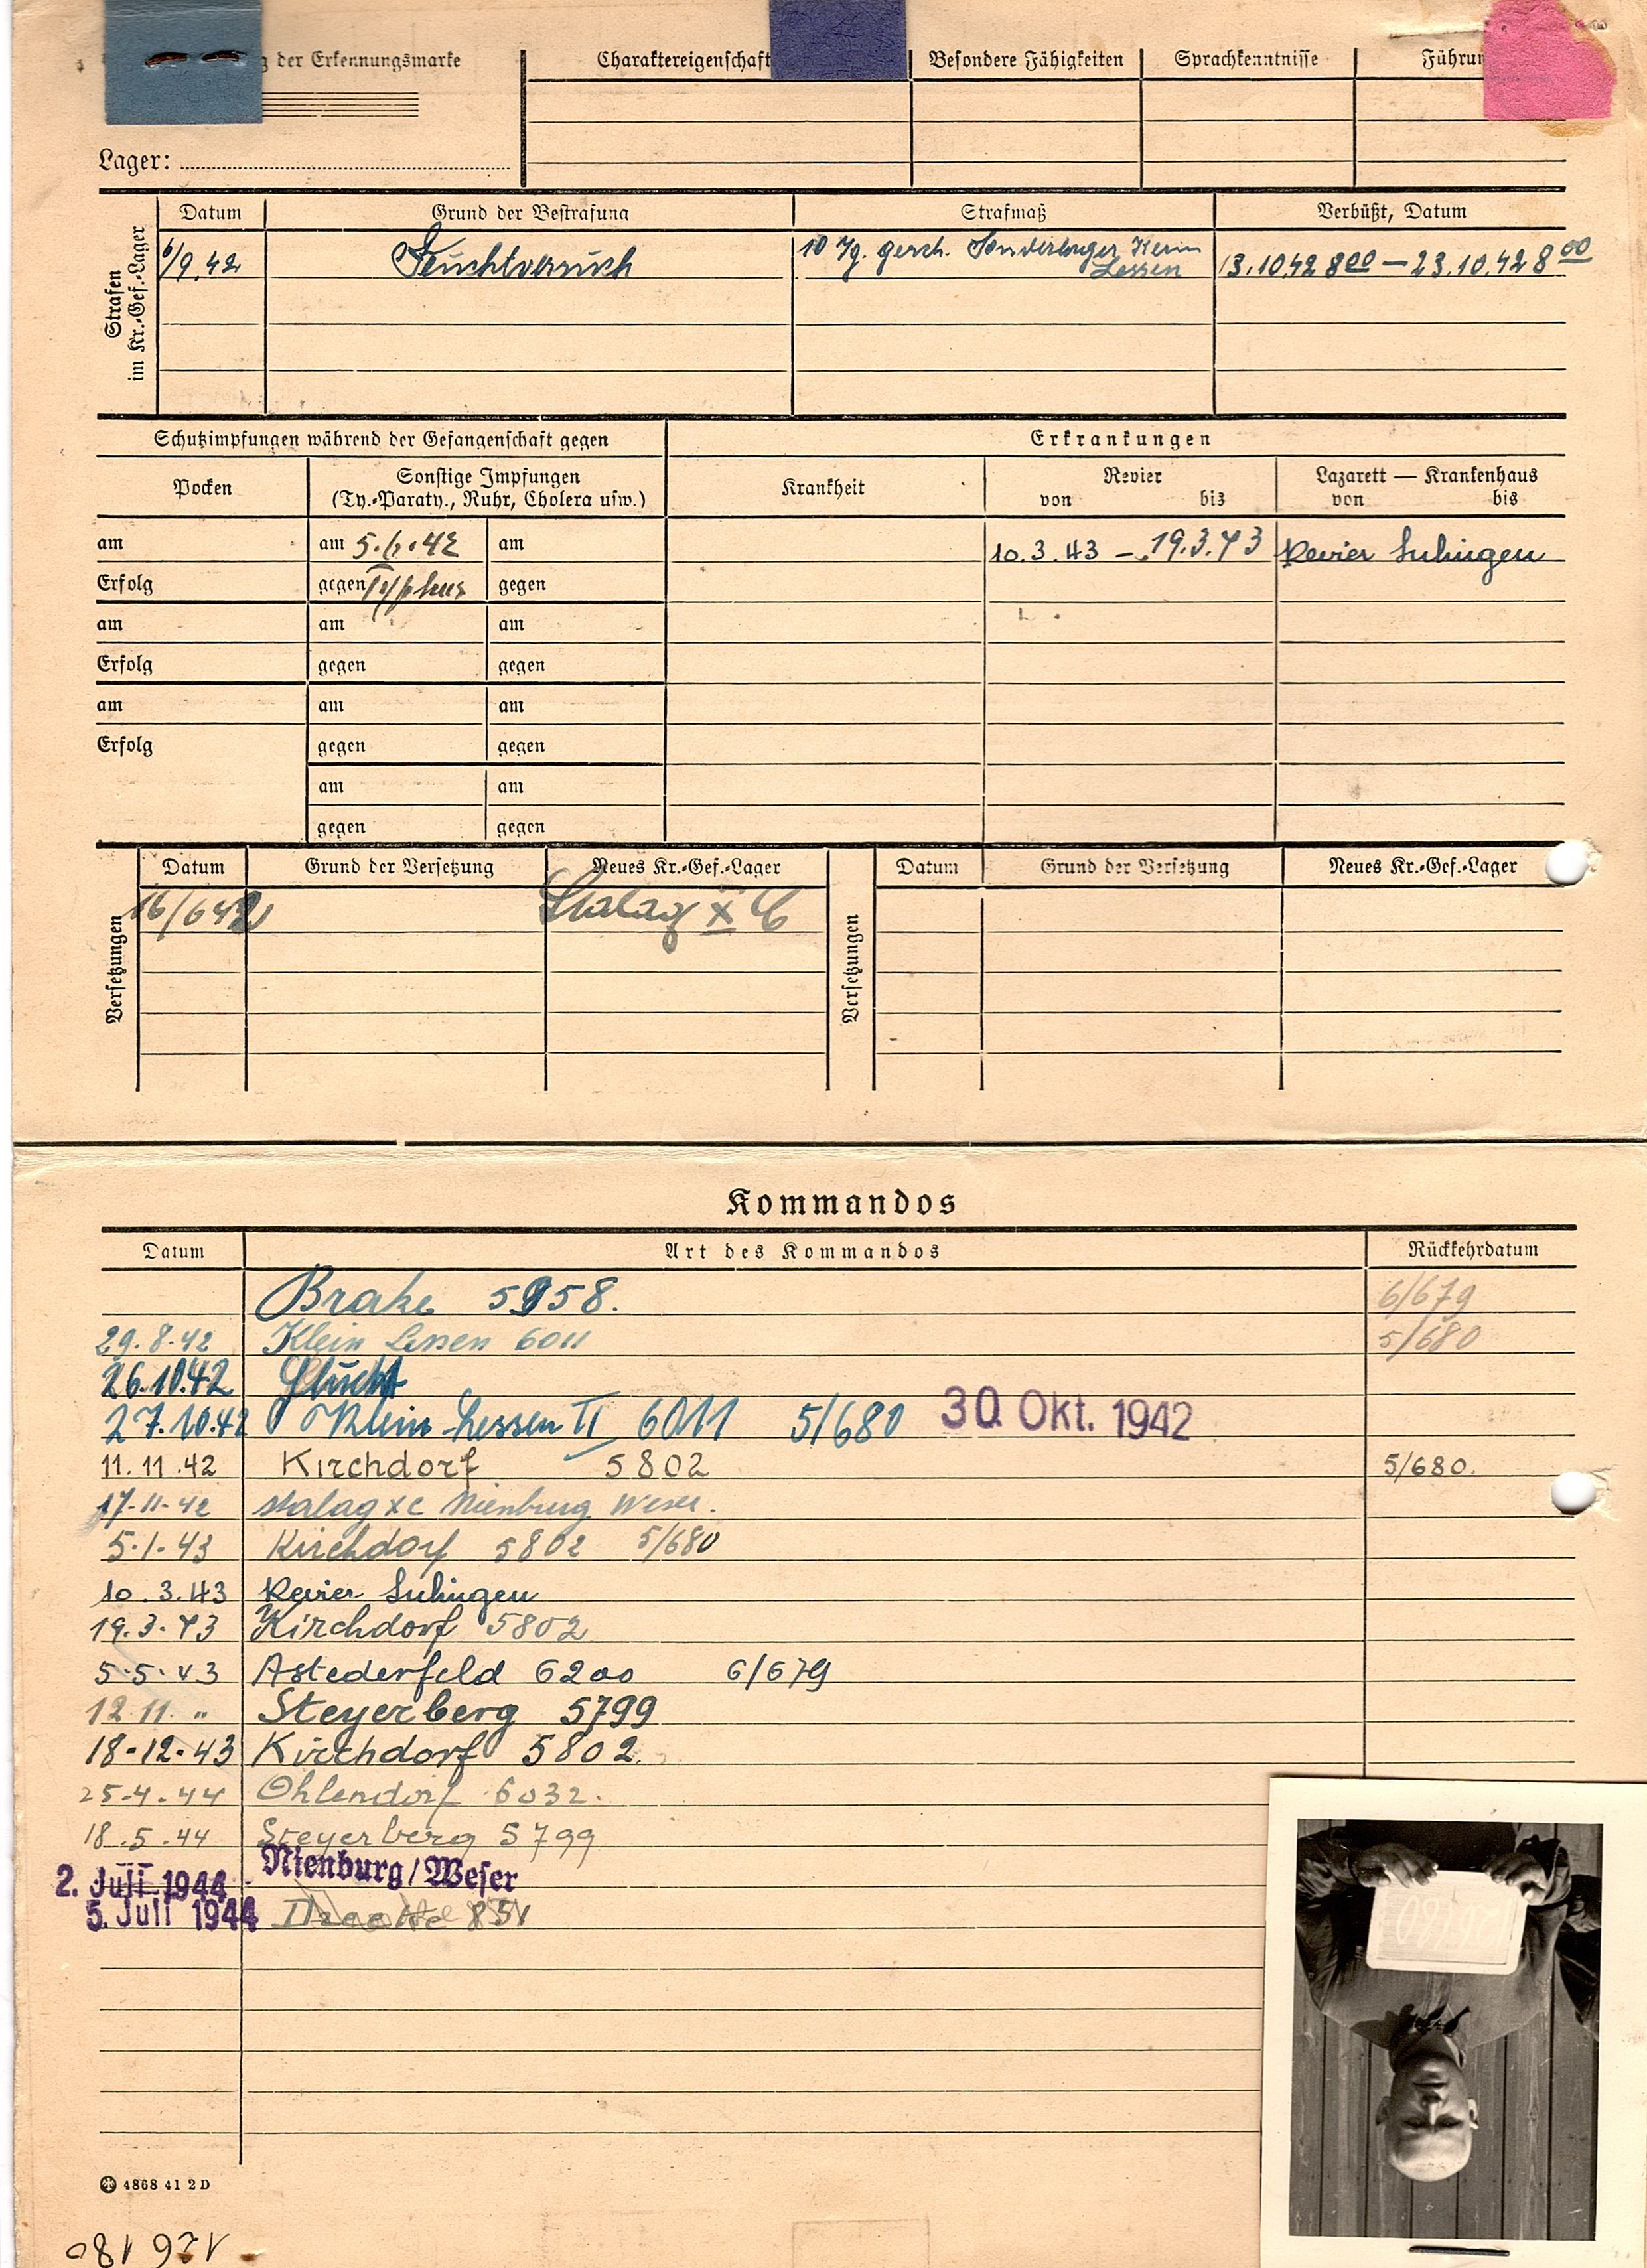 g der Erkennungsmarke Charaktereigenschaft Besondere Fähigkeiten Sprachkenntnisse Führun
Lager:
Strafen im Kr.-Gef.-Lager
Datum Grund der Bestrafung Strafmaß Verbüßt, Datum
/9.42 10 Tg. gesch. Sonderlager Klein
Lessen 13.10.42 8 00 — 23.10.42 8 00
Schutzimpfungen während der Gefangenschaft gegen Erkrankungen
Pocken Sonstige Impfungen
(Ty.-Paraty., Ruhr, Cholera usw.) Krankheit Revier
von bis Lazarett — Krankenhaus
von bis
am am 5. .42 am 10.3.43 – 19.3.43 Revier Sulingen
Erfolg gegen Typhus gegen
am am am
Erfolg gegen gegen
am am am
Erfolg gegen gegen
am am
gegen gegen
Versetzungen
Datum Grund der Versetzung Neues Kr.-Gef.-Lager
16/6 42 Stalag X C
Versetzungen
Datum Grund der Versetzung Neues Kr.-Gef.-Lager
Kommandos
Datum Art des Kommandos Rückkehrdatum
Brake 5958. 6/679
29.8.42 Klein Lessen 6011 5/680
26.10.42 Flucht
27.10.42 Klein Lessen II 6011 5/680 30. Okt. 1942
11.11.42 Kirchdorf 5802 5/680.
17.11.42 Stalag XC Nienburg Weser.
5.1.43 Kirchdorf 5802 5/680
10.3.43 Revier Sulingen
19.3.43 Kirchdorf 5802
5.5.43 Astederfeld 6200 6/679
12.11. " Steyerberg 5799
18.12.43 Kirchdorf 5802.
25.4.44 Ohlendorf 6032.
18.5.44 Steyerberg 5799
2. Juli 1944 Nienburg/Weser
5. Juli 1944 851
4868 41 2 D
126180
126180